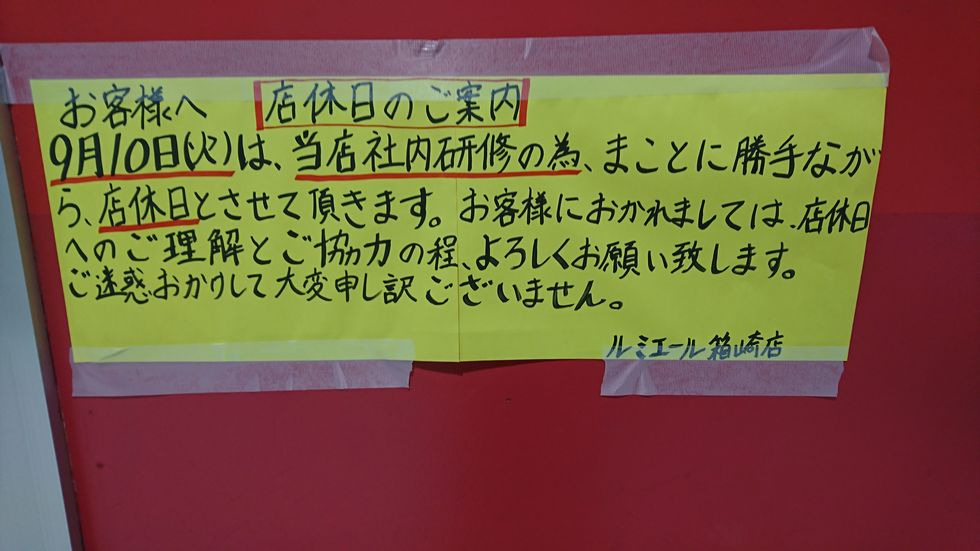 お客様へ 店休日のご案内
9月10日(火)は、当店社内研修の為、まことに勝手なが
ら、店休日とさせて頂きます。お客様におかれましては、店休日
へのご理解とご協力の程、よろしくお願い致します。
ご迷惑おかけして大変申し訳ございません。
ルミエール箱崎店